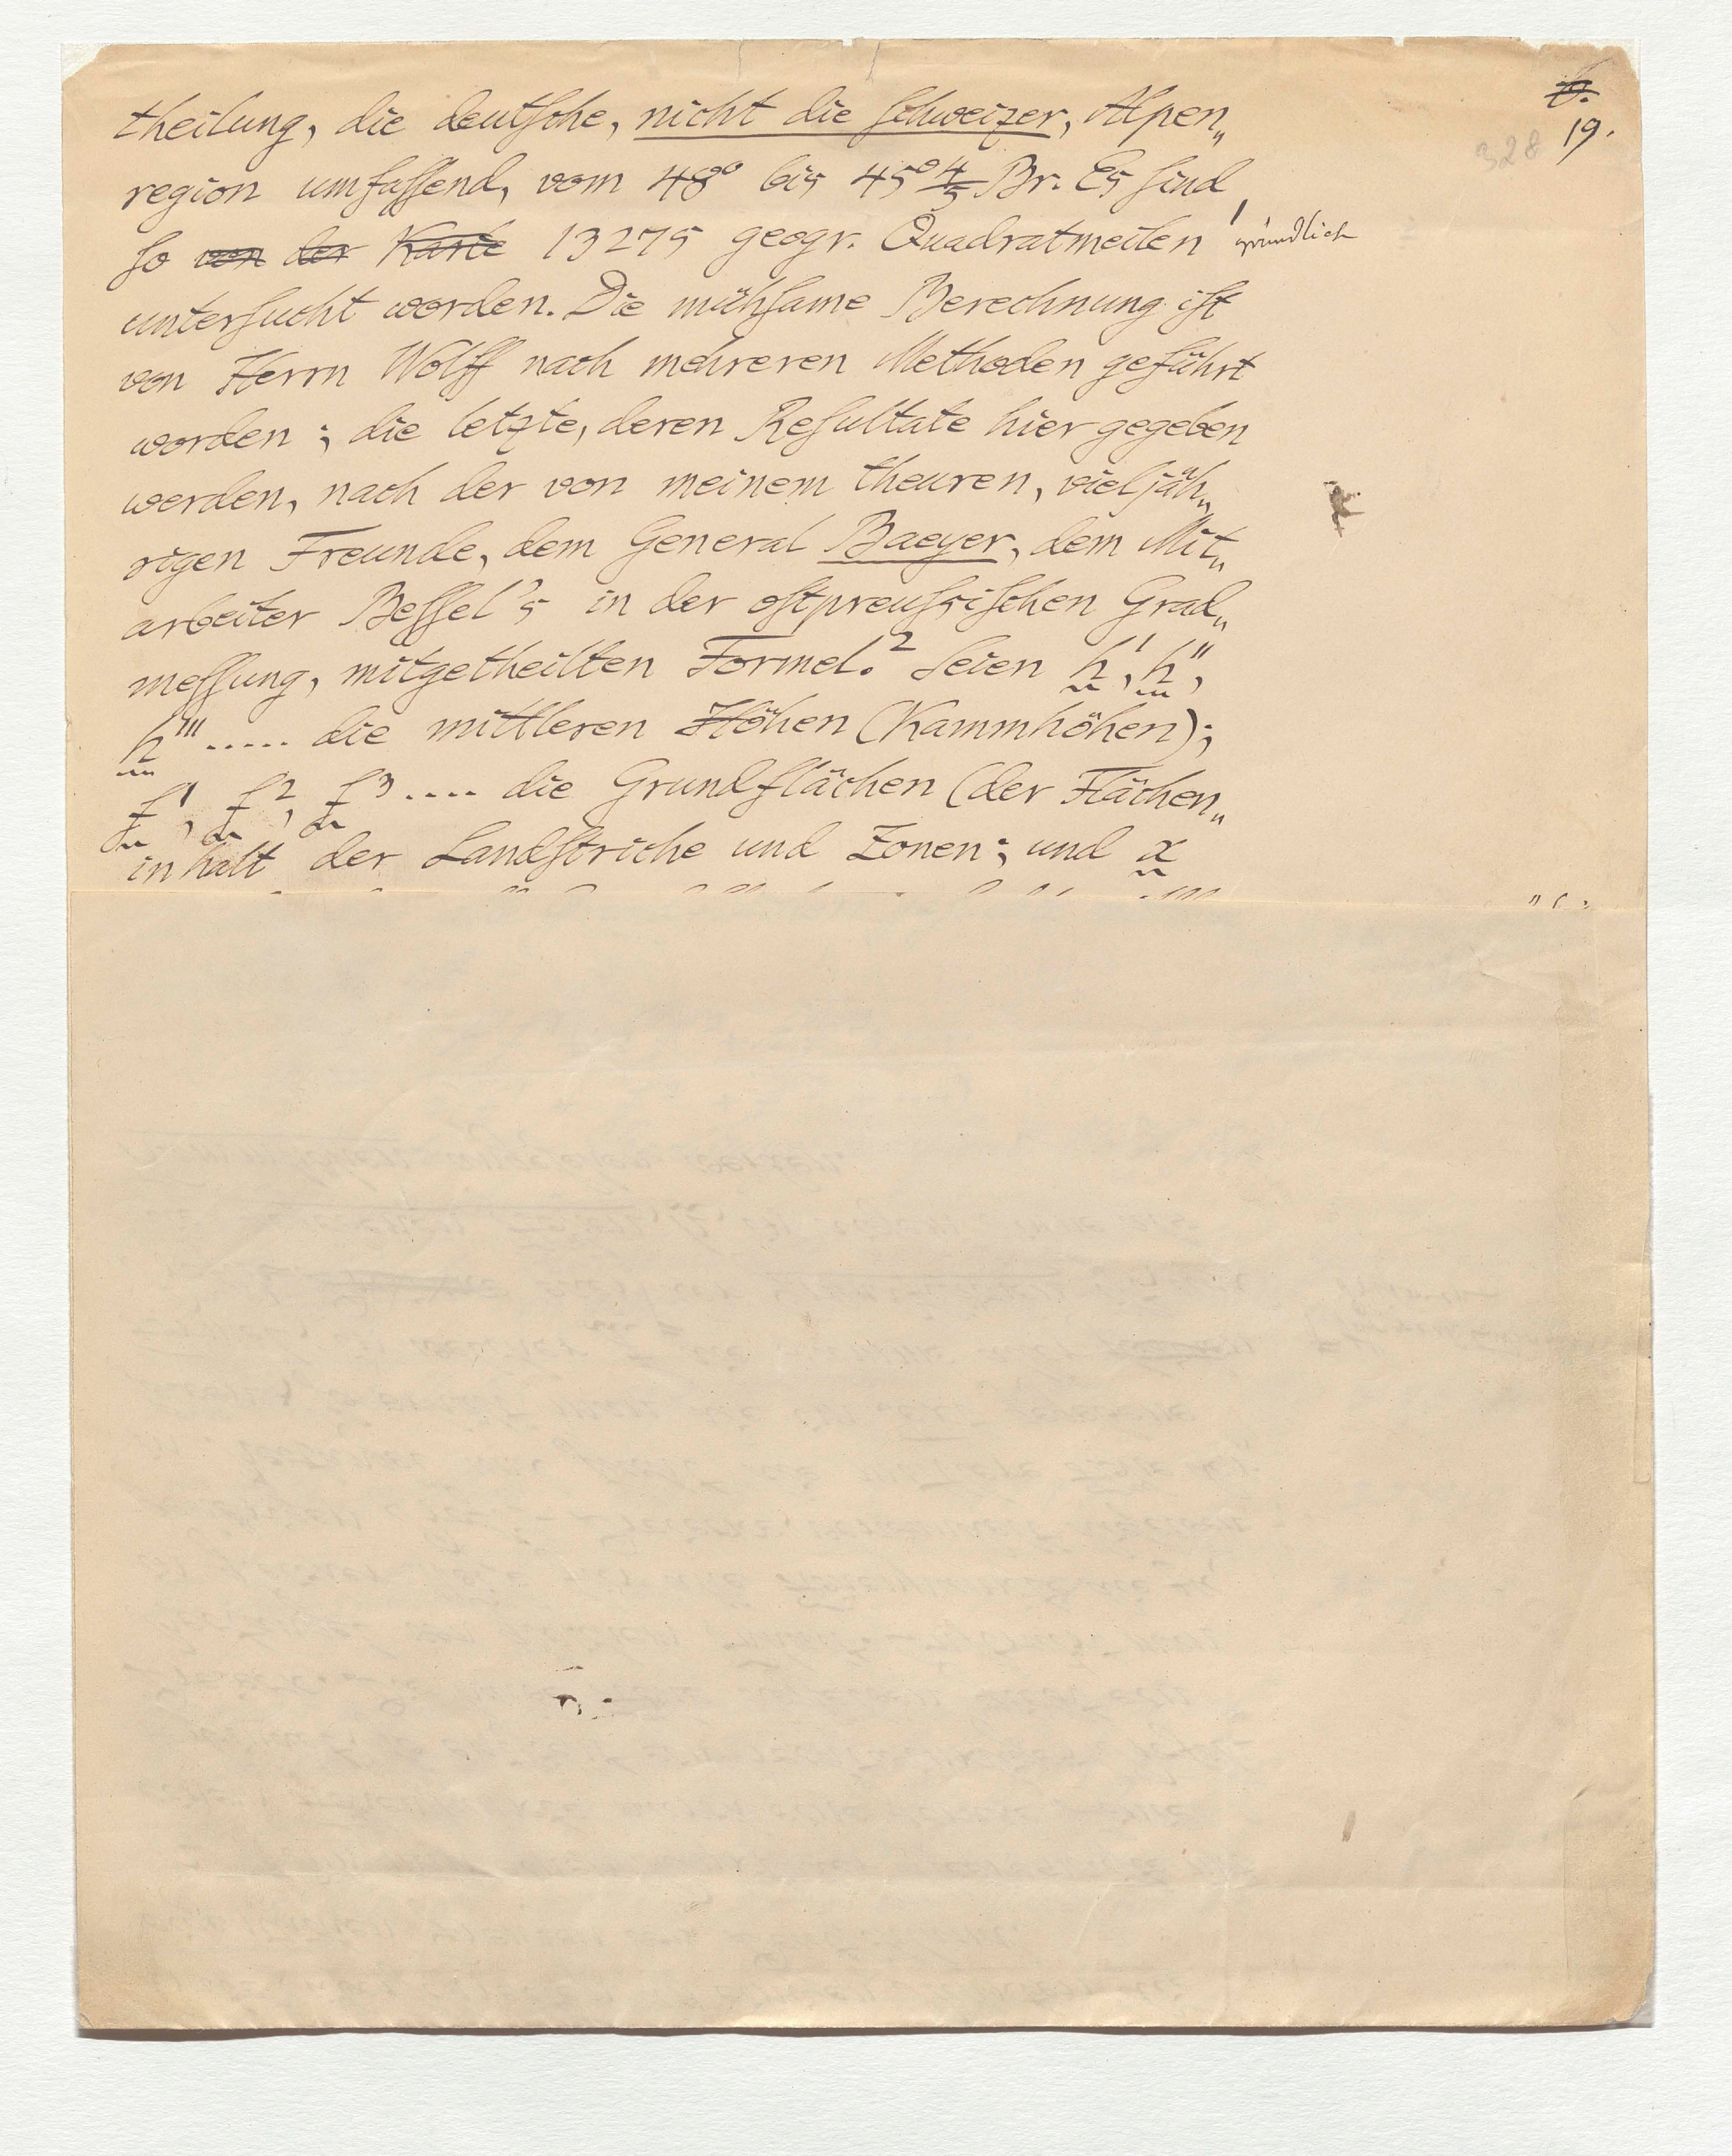 6.
19.
328
theilung, die deutsche, nicht die schweizer, Alpen„
region umfassend, vom 48° bis 45°4/5 Br. Es sind
so von der Karte 13275 geogr. Quadratmeilen gründlich
untersucht worden. Die mühsame Berechnung ist
von Herrn Wolff nach mehreren Methoden geführt
worden; die letzte, deren Resultate hier gegeben
werden, nach der von meinem theuren, vieljäh„
rigen Freunde, dem General Baeyer, dem Mit„
arbeiter Bessel's in der ostpreussischen Grad„
messung, mitgetheilten Formel.² Seien h', h'',
h''' ..... die mittleren Höhen (Kammhöhen);
f¹, f², f³ .... die Grundflächen (der Flächen„
inhalt der Landstriche und Zonen; und x